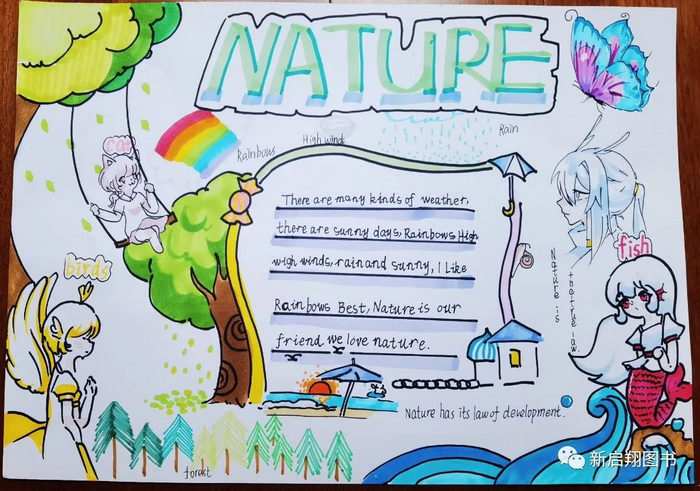 NATURE
Rainbows
High winds
Rain
cat
There are many kinds of weather,
there are sunny days, Rainbows High
wigh winds, rain and sunny, I Like
Rainbows Best, Nature is our
friend we love nature.
birds
fish
Nature is
the true law
Nature has its law of development.
forest
新启翔图书